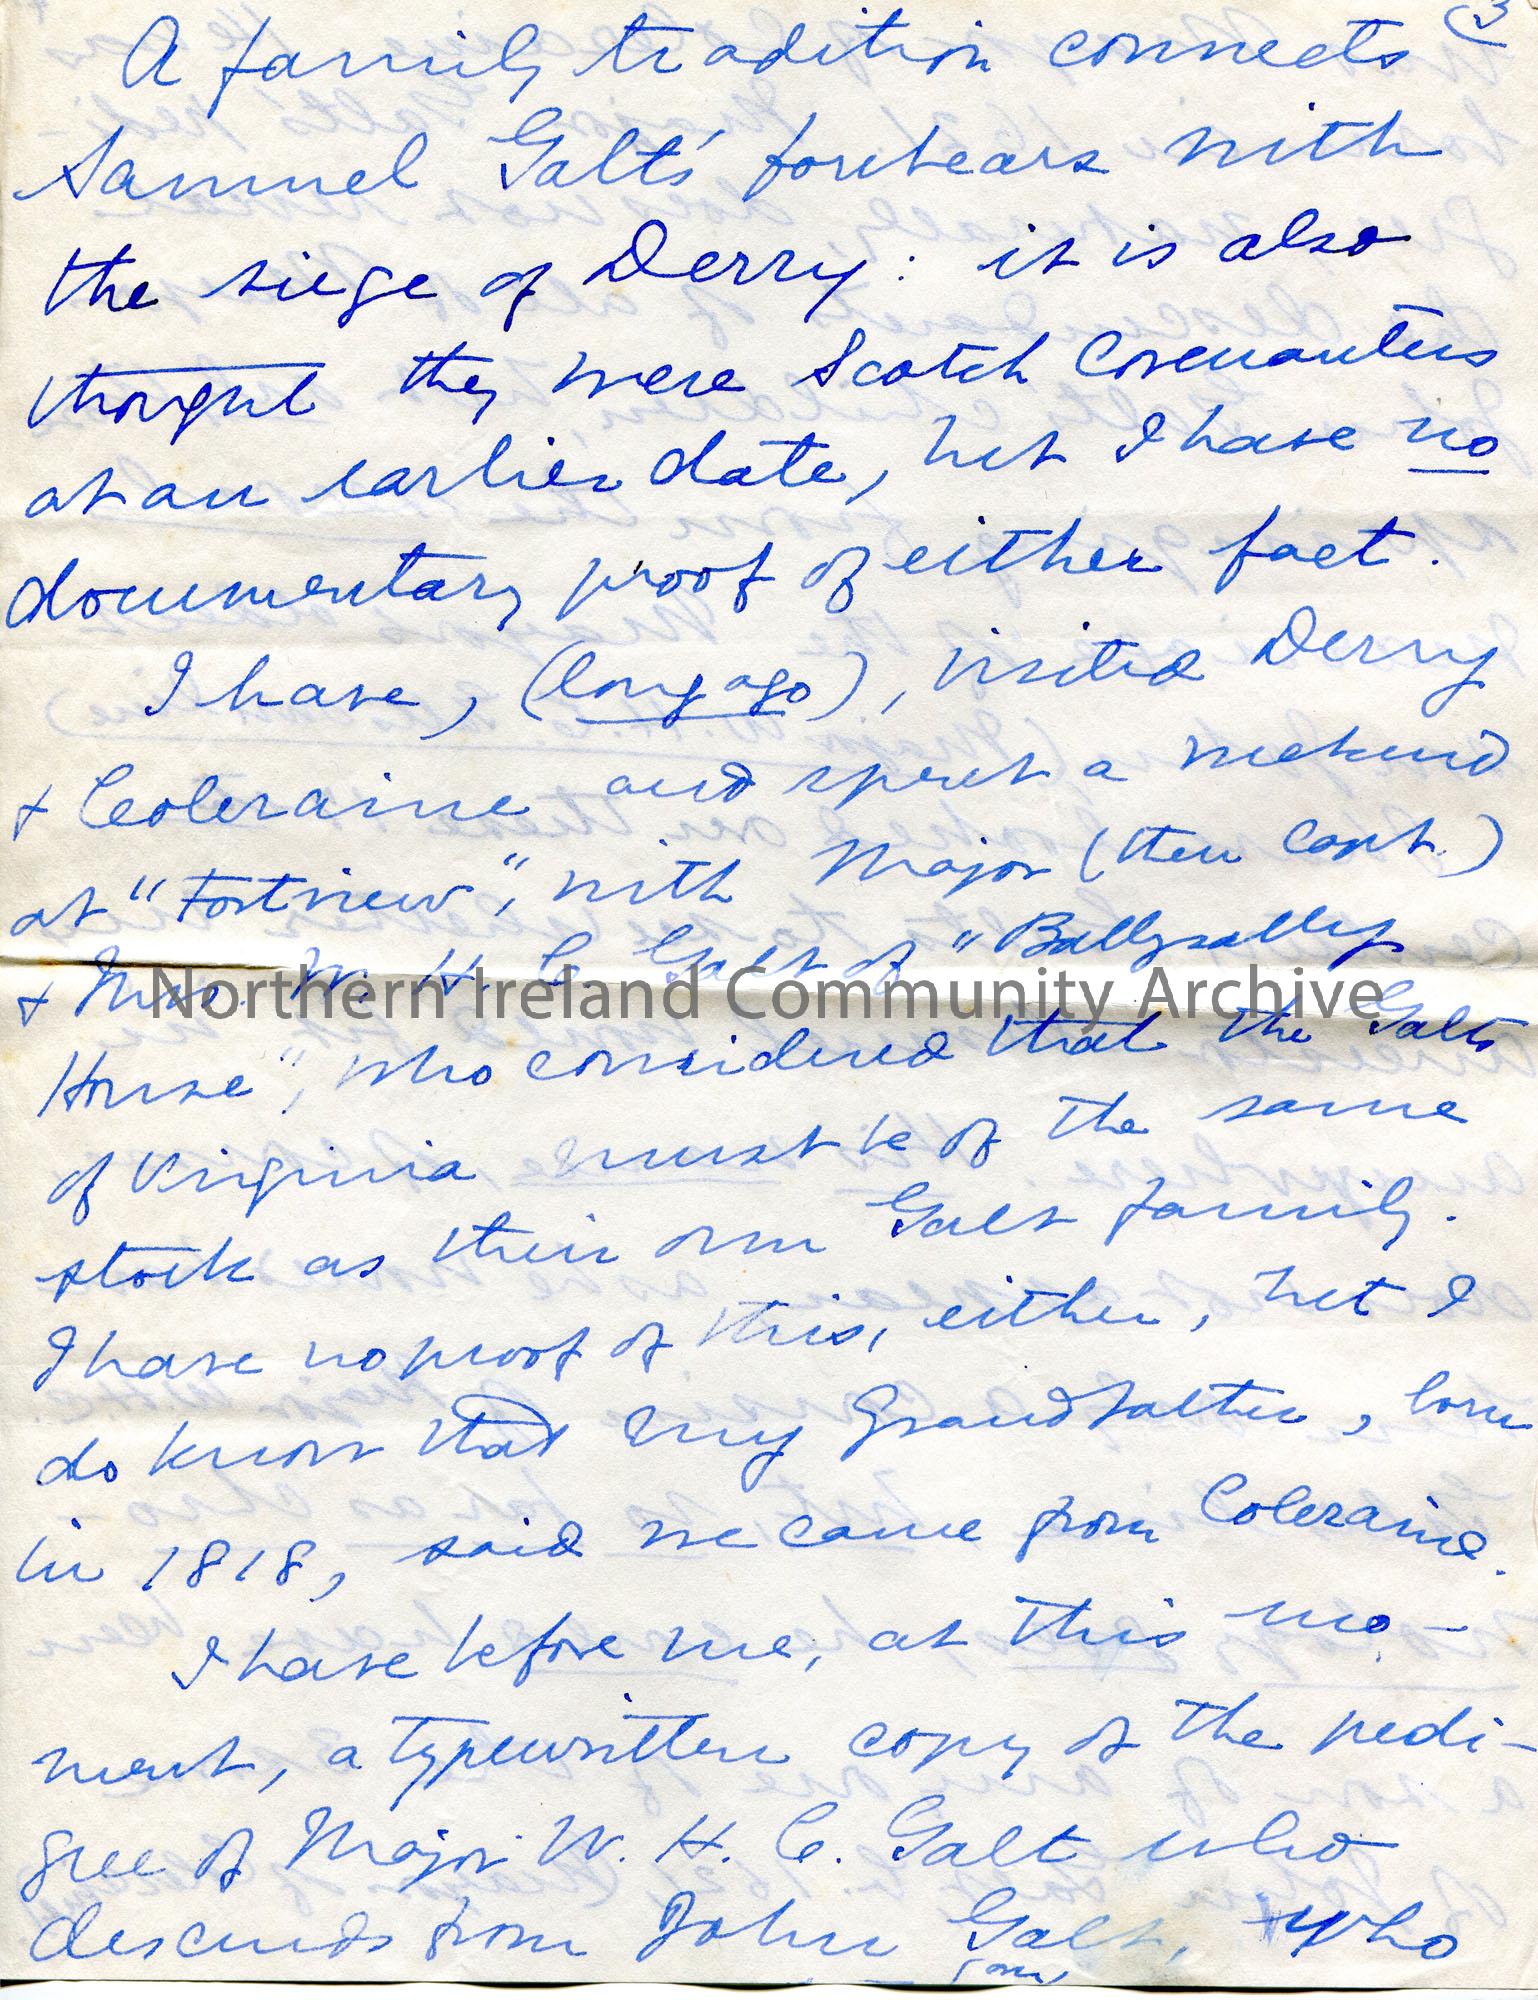 3
A family tradition connects
Samuel Galt's forebears with
the siege of Derry: it is also
thought they were Scotch Covenanters
at an earlier date, but I have no
documentary proof of either fact.
I have, (long ago), visited Derry
+ Coleraine and spent a weekend
at "Fortview", with Major (then Capt.)
+ Mrs. W. H. C. Galt of "Ballysally
Northern Ireland Community Archive
House", who considered that the Galts
of Virginia must be of the same
stock as their own Galt family.
I have no proof of this, either, but I
do know that my Grandfather, born
in 1818, said we came from Coleraine.
I have before me, at this mo-
ment, a typewritten copy of the pedi-
gree of Major W. H. C. Galt who
descends from John Galt, who